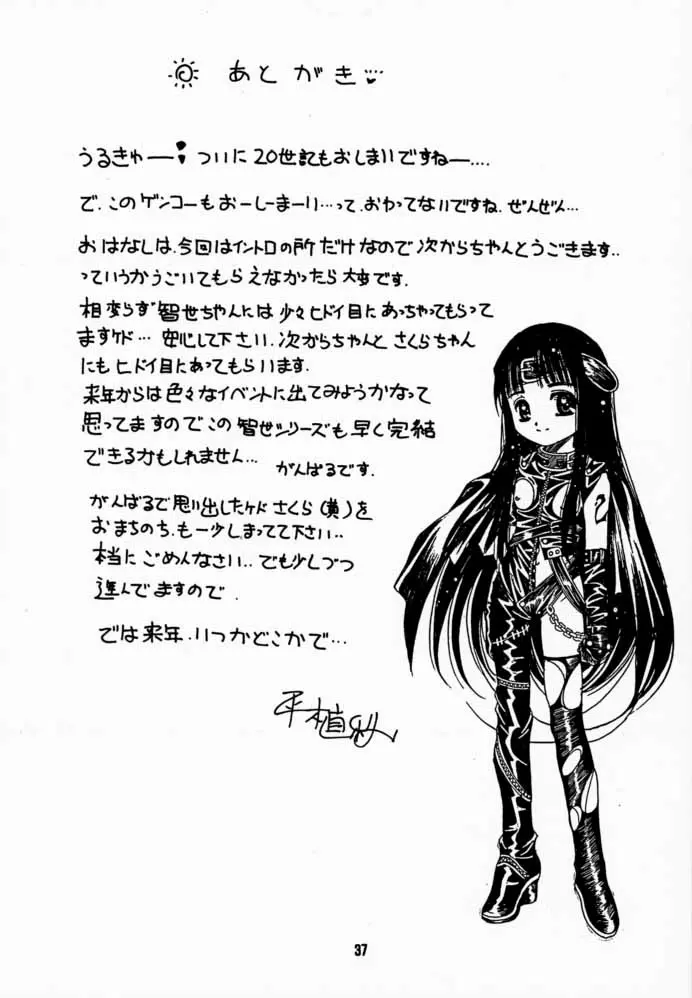 あとがき
うるきゅー ついに20世紀もおしまいですねー....
で、このゲンコーもおーしーまーい…って、おわってないですね、ぜんぜん…
おはなしは、今回はイントロの所だけなので次からちゃんとうごきます..
っていうかうごいてもらえなかったら大事です.
相変らず智世ちゃんには少々ヒドイ目にあっちゃってもらって
ますケド… 安心して下さい. 次からちゃんとさくらちゃん
にもヒドイ目にあってもらいます.
来年からは色々なイベントに出てみようかなって
思ってますのでこの智世シリーズも早く完結
できるかもしれません… がんばるです.
がんばるで思い出したケドさくら(黄)を
おまちのち、も一少しまってて下さい..
本当にごめんなさい.. でも少しづつ
進んでますので.
では来年、いつかどこかで…
平植
37